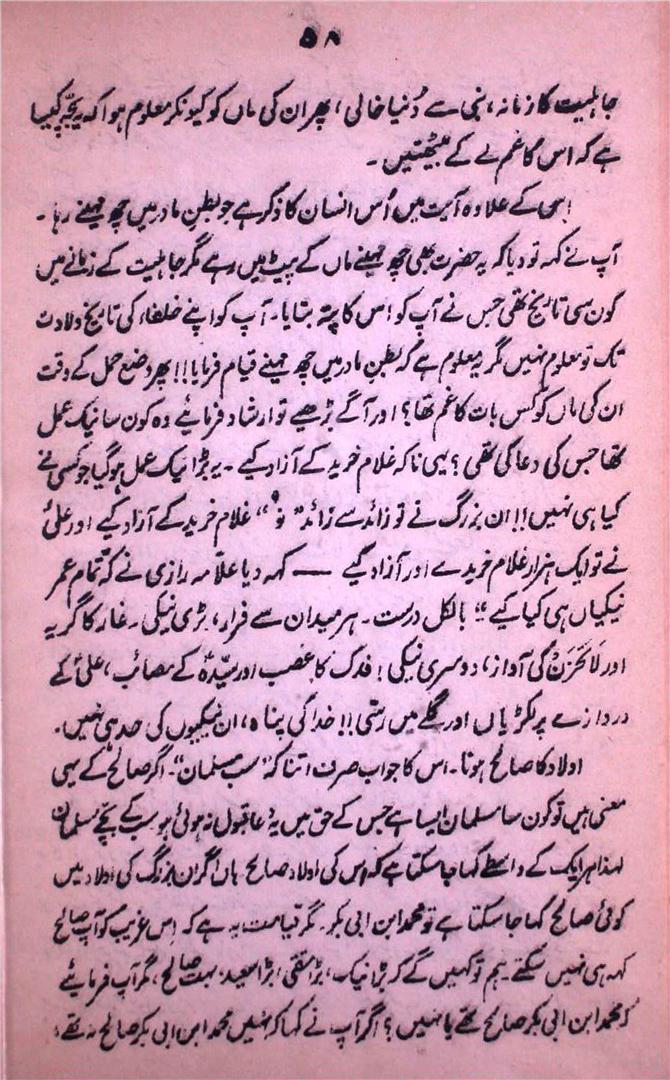 ۵۸
جاہلیت کا زمانہ، نبی سے دُنیا خالی، پھر ان کی ماں کو کیونکر معلوم ہوا کہ یہ بچّہ کیسا
ہے کہ اس کا غم لے کے بیٹھتیں۔
اسی کے علاوہ آیت میں اُس انسان کا ذکر ہے جو بطنِ مادر میں چھ مہینے رہا۔
آپ نے کہہ تو دیا کہ یہ حضرت بھی چھ مہینے ماں کے پیٹ میں رہے مگر جاہلیت کے زمانے میں
کون سی تاریخ تھی جس نے آپ کو اس کا پتہ بتایا۔ آپ کو اپنے خلفاء کی تاریخ ولادت
تک تو معلوم نہیں مگر یہ معلوم ہے کہ بطنِ مادر میں چھ مہینے قیام فرمایا!! پھر وضع حمل کے وقت
ان کی ماں کو کس بات کا غم تھا؟ اور آگے بڑھیے تو ارشاد فرمائیے وہ کون سا نیک عمل
تھا جس کی دعا کی تھی؟ یہی نا کہ غلام خرید کے آزاد کیے۔ یہ بڑا نیک عمل ہو گیا جو کسی نے
کیا ہی نہیں!! ان بزرگ نے تو زائد سے زائد "نو" غلام خرید کے آزاد کیے اور علیؑ
نے تو ایک ہزار غلام خریدے اور آزاد کیے — کہہ دیا علامہ رازی نے کہ "تمام عمر
نیکیاں ہی کیا کیے" بالکل درست۔ ہر میدان سے فرار، بڑی نیکی۔ غار کا گریہ
اور لَاتَحْزَنْ کی آواز، دوسری نیکی! فدک کا غصب اور سیّدہؑ کے مصائب، علیؑ کے
دروازے پر لکڑیاں اور گلے میں رسّی!! خدا کی پناہ، ان نیکیوں کی حد ہی نہیں۔
اولاد کا صالح ہونا۔ اس کا جواب صرف اتنا کہ "سب مسلمان"۔ اگر صالح کے یہی
معنی ہیں تو کون سا مسلمان ایسا ہے جس کے حق میں یہ دُعا قبول نہ ہوئی ہو سب کے بچے مسلمان
لہذا ہر ایک کے واسطے کہا جا سکتا ہے کہ اس کی اولاد صالح۔ ہاں اگر ان بزرگ کی اولاد میں
کوئی صالح کہا جا سکتا ہے تو محمد ابن ابی بکر۔ مگر قیامت یہ ہے کہ اِس غریب کو آپ صالح
کہہ ہی نہیں سکتے۔ ہم تو کہیں گے کہ بڑا نیک، بڑا متقی، بڑا سعید، بہت صالح، مگر آپ فرمائیے
کہ محمد ابن ابی بکر صالح تھے یا نہیں؟ اگر آپ نے کہا کہ نہیں محمد ابن ابی بکر صالح نہ تھے،